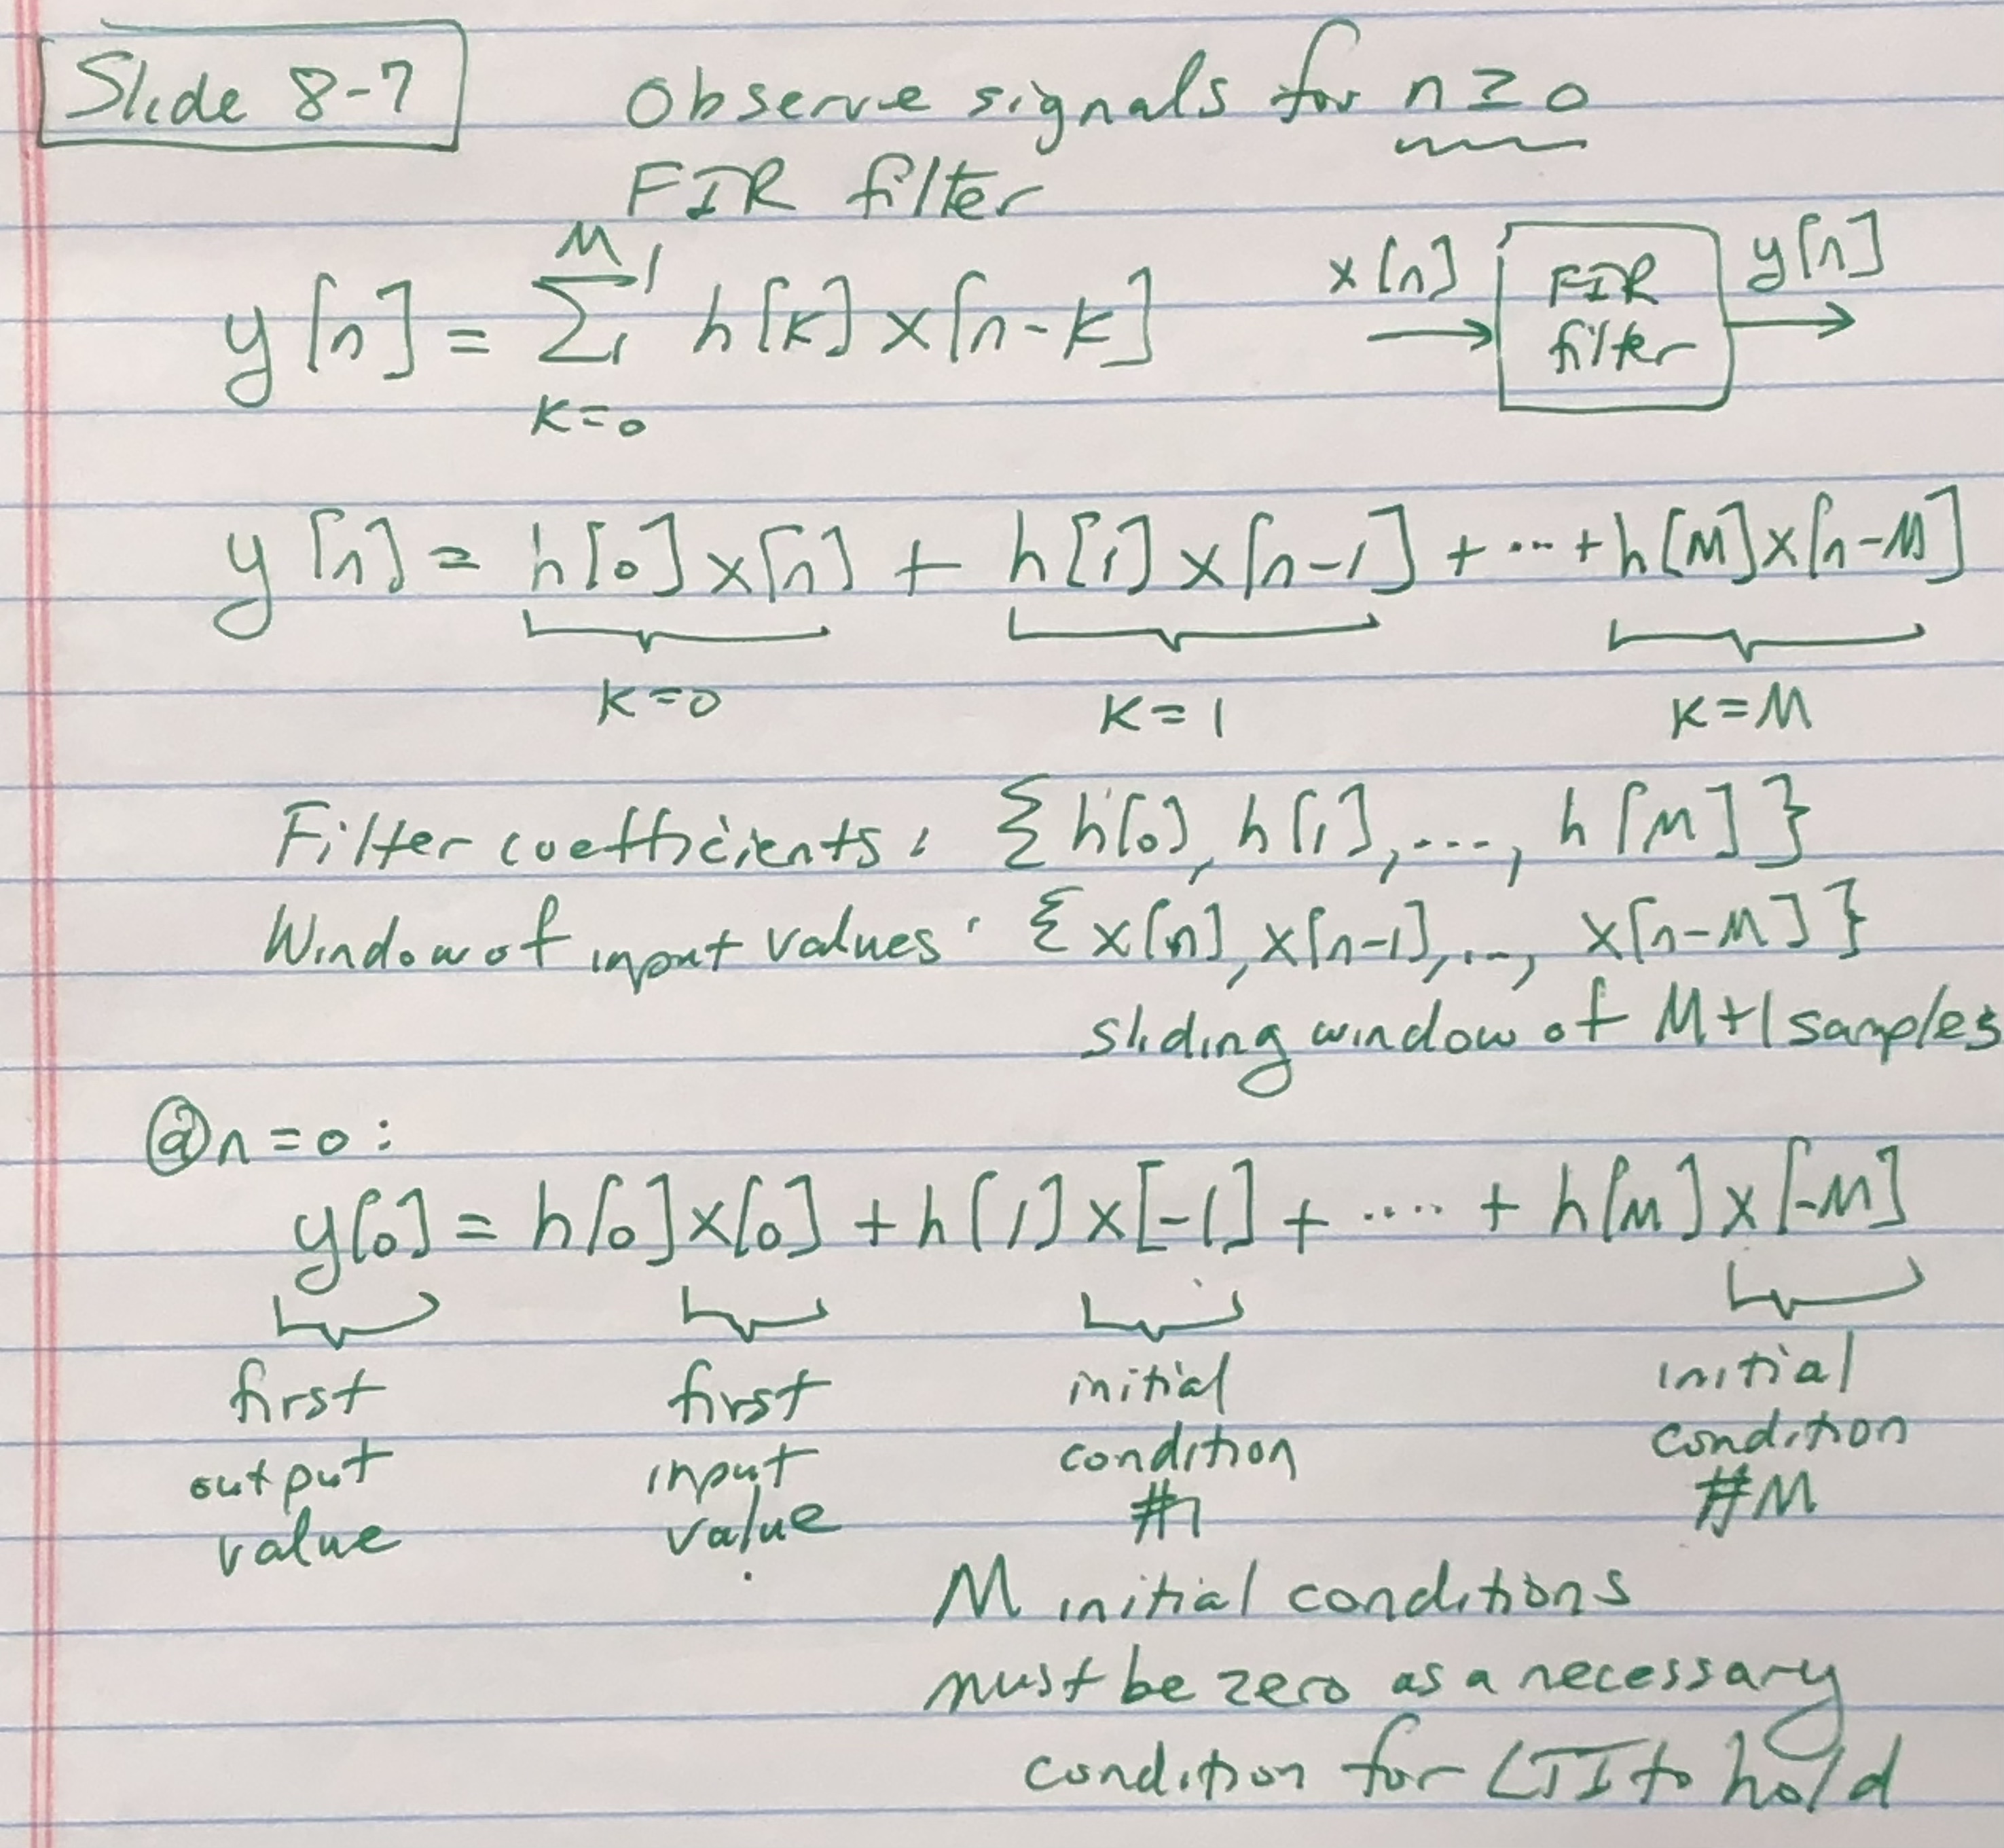 Slide 8-7 Observe signals for n≥0
FIR filter
y[n] = M Σ k=0 h[k] x[n-k]
x[n] FIR filter y[n]
y[n] = h[0] x[n] + h[1] x[n-1] + ... + h[M] x[n-M]
k=0 k=1 k=M
Filter coefficients: {h[0], h[1], ..., h[M]}
Window of input values: {x[n], x[n-1], ..., x[n-M]}
sliding window of M+1 samples
@n=0:
y[0] = h[0] x[0] + h[1] x[-1] + .... + h[M] x[-M]
first first initial initial
output input condition condition
value value #1 #M
M initial conditions
must be zero as a necessary
condition for LTI to hold